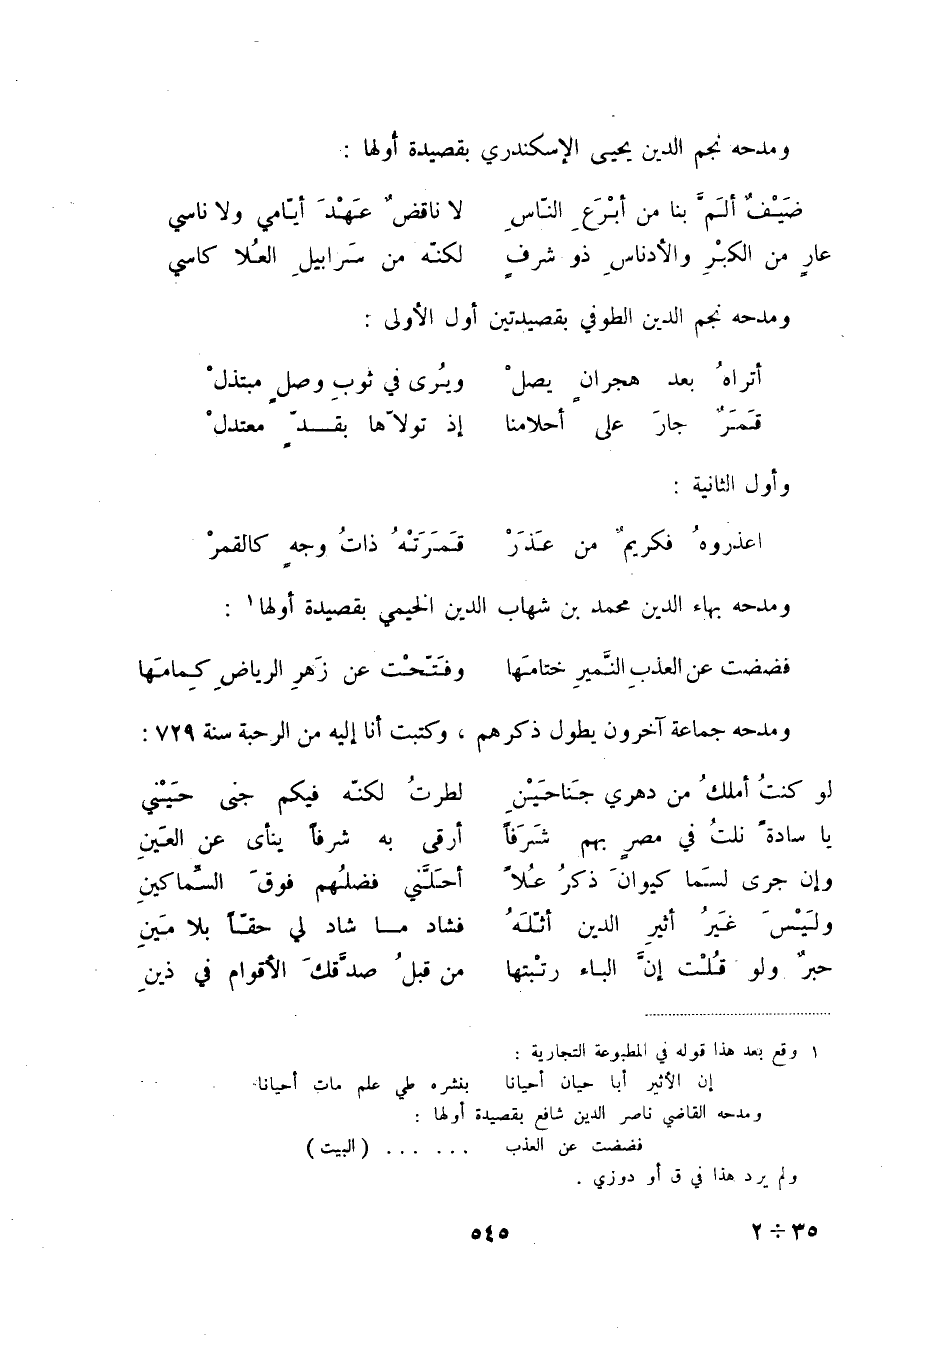 ومدحه نجم الدين يحيى الإسكندري بقصيدة أولها :
ضَيْفٌ ألَمَّ بنا من أبْرَعِ النّاسِ لا ناقضٌ عَهْدَ أيّامي ولا ناسي
عارٍ من الكبْرِ والأدناسِ ذو شرفٍ لكنّه من سَرابيلِ العُلا كاسي
ومدحه نجم الدين الطوفي بقصيدتين أول الأولى :
أتراهُ بعد هجرانٍ يصلْ ويُرى في ثوبِ وصلٍ مبتذلْ
قَمَرٌ جارَ على أحلامنا إذ تولاّها بقـــدٍّ معتدلْ
وأول الثانية :
اعذروهُ فكريمٌ من عَذَرْ قَمَرَتْهُ ذاتُ وجهٍ كالقمرْ
ومدحه بهاء الدين محمد بن شهاب الدين الخيمي بقصيدة أولها ١ :
فضضت عن العذبِ النَّميرِ ختامَها وفَتّحْت عن زَهرِ الرياضِ كِمامَها
ومدحه جماعة آخرون يطول ذكرهم ، وكتبت أنا إليه من الرحبة سنة ٧٢٩ :
لو كنتُ أملكُ من دهري جَناحَيْنِ لطرتُ لكنّه فيكم جنى حَيْني
يا سادةً نلتُ في مصرٍ بهم شَرَفاً أرقى به شرفاً ينأى عن العَينِ
وإن جرى لسَما كيوانَ ذكرُ عُلاً أحلَّني فضلُهم فوقَ السِّماكينِ
ولَيْسَ غَيرُ أثيرِ الدين أثّلَهُ فشاد مــا شاد لي حقّاً بلا مَينِ
حبرٌ ولو قُلْت إنَّ الباء رتْبتها من قبلُ صدَّقكَ الأقوام في ذينِ
١ وقع بعد هذا قوله في المطبوعة التجارية :
إن الأثير أبا حيان أحيانا بنشره طي علم مات أحيانا
ومدحه القاضي ناصر الدين شافع بقصيدة أولها :
فضضت عن العذب ... ... ( البيت )
ولم يرد هذا في ق أو دوزي .
٣٥ ÷ ٢ ٥٤٥